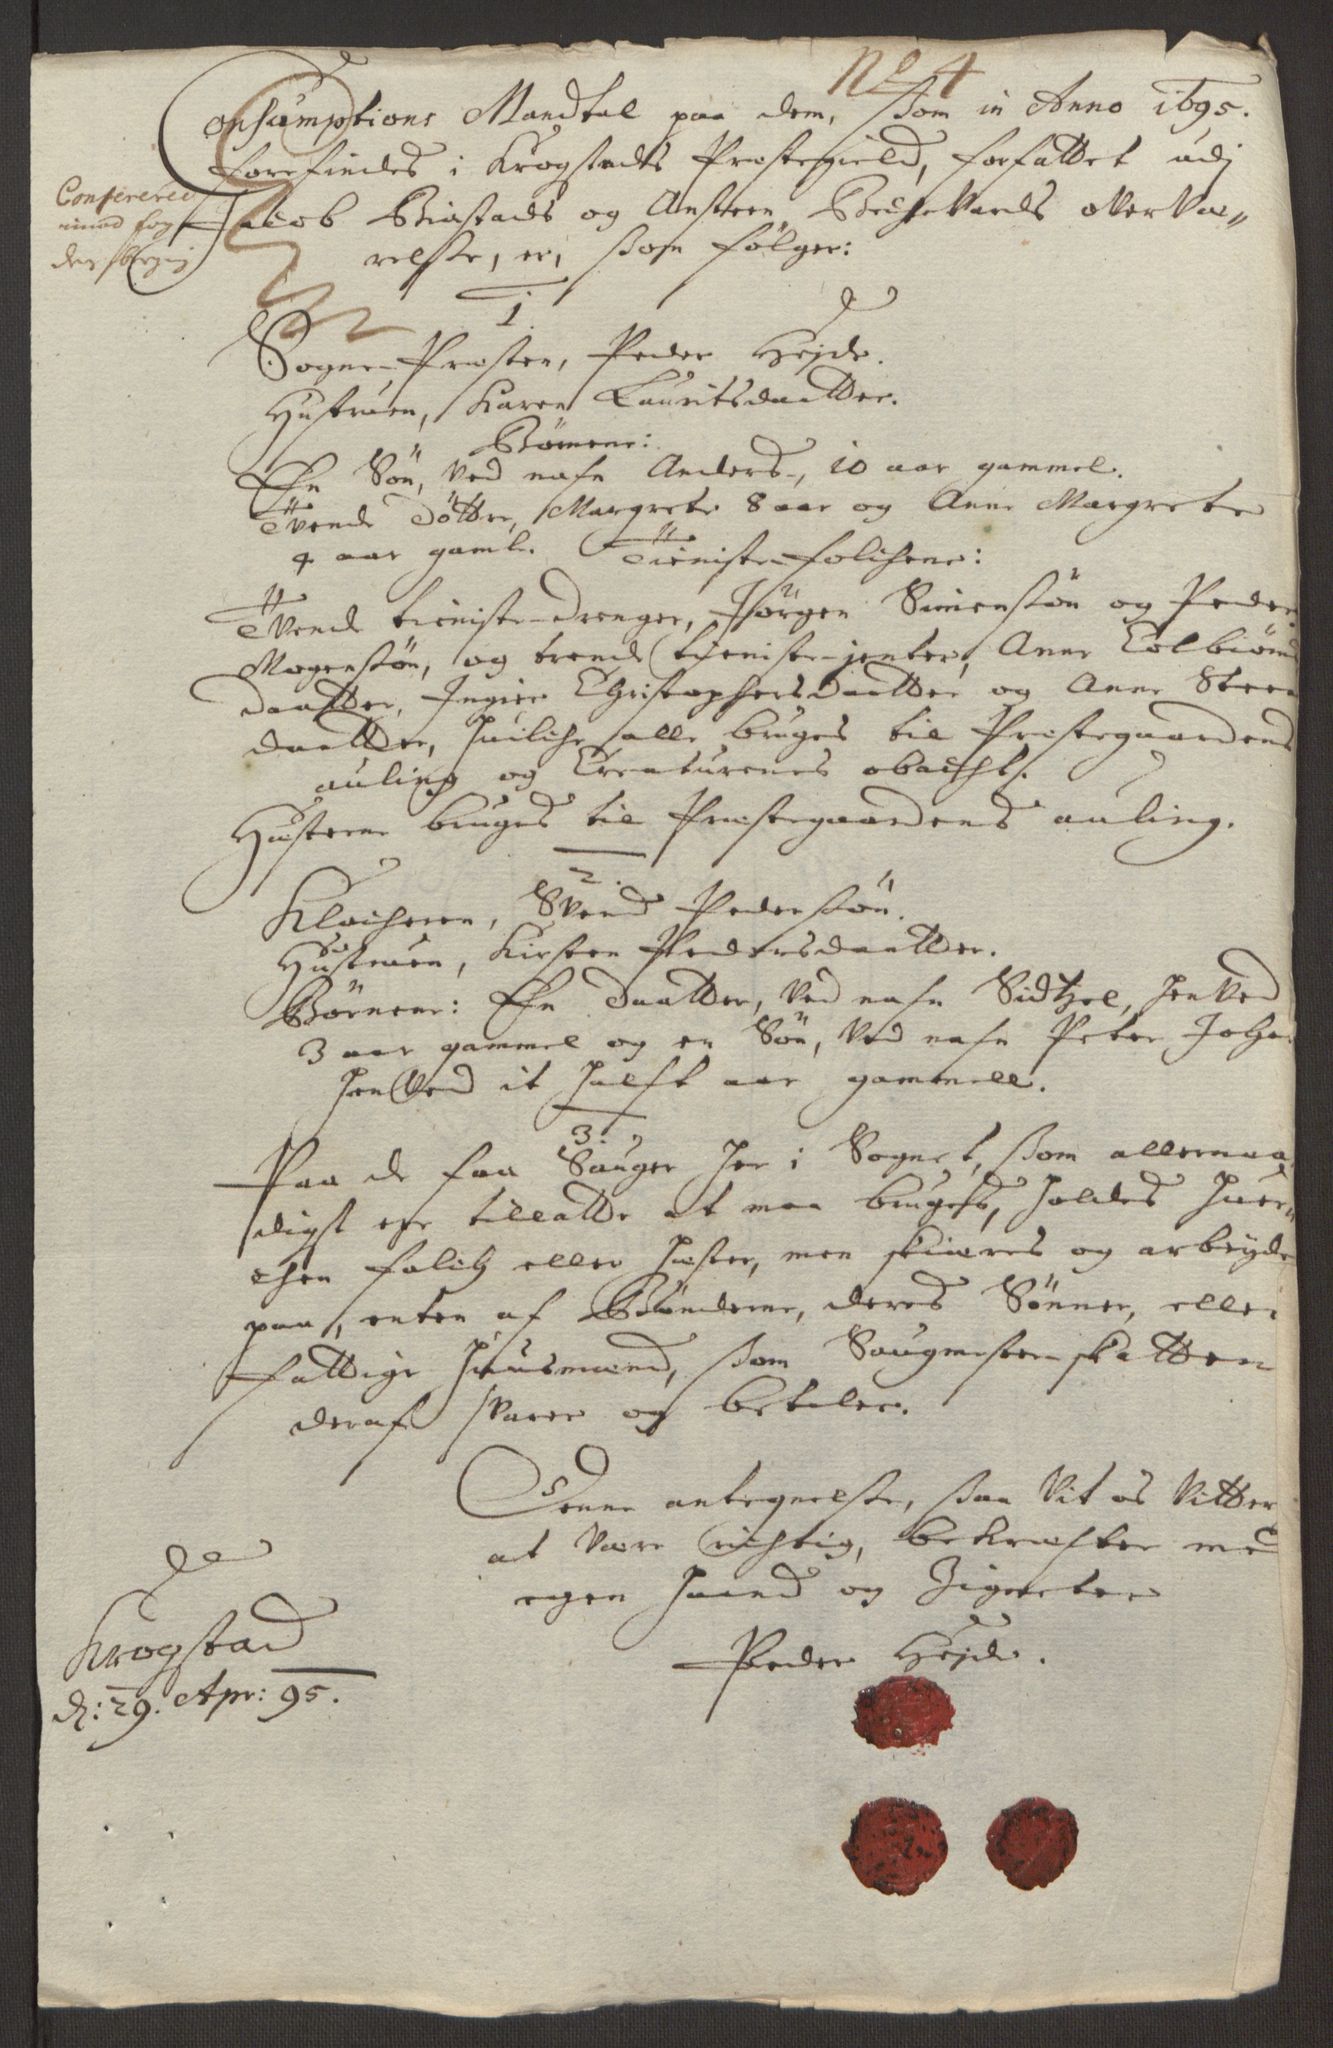 No 4
Consumptions Mandtal paa dem, som in Anno 1695.
forefindes i Krogstads Prestegield, forfattet udj
Jacob Biastads og Ansteen Beckevards overvæ„
relse, er, som følger:
Confereret
imod fog
1.
Sogne-Presten, Peder Hejde.
Hustruen, Karen Lauritsdaatter.
Börnene:
En Sön, ved nafn Anders, 10 aar gammel.
Tvende Döttre, Margrete 8 aar og Anne Margrete
4 aar gaml. Tieniste-folchene:
Tvende tieniste-drenger, Jörgen Simensön og Peder
Mogensön, og trende tieniste-jenter, Anne Colbiöns
daatter, Ingier Christophersdaatter og Anne Steens
daatter, huilche alle bruges til Prestegaardens
auling og Creaturenes obacht.
Hesterne bruges til Prestegaardens auling.
2.
Klocheren, Svend Pedersön.
Hustruen, Kirsten Pedersdaatter.
Börnene: En Daatter, ved nafn Sidtzel, henved
3 aar gammel og en Sön, ved nafn Peter Joha
henved it halft aar gammell.
3.
Paa de faa Sauger her i Sognet, som allernaa
digst ere tillatte at maa bruges, holdes huer„
chen folch eller hester, men skiæres og arbeyde
paa, enten af Bönderne, deres Sönner, eller
fattige huusmænd, som Saugmester-skatten
deraf svarer og betaler.
Denne antegnelse, saa vit os vitter
at være richtig, bekrefter med
egen haand og Zigneter
Peder Hejde.
Krogstad
d: 29. Apr: 95.